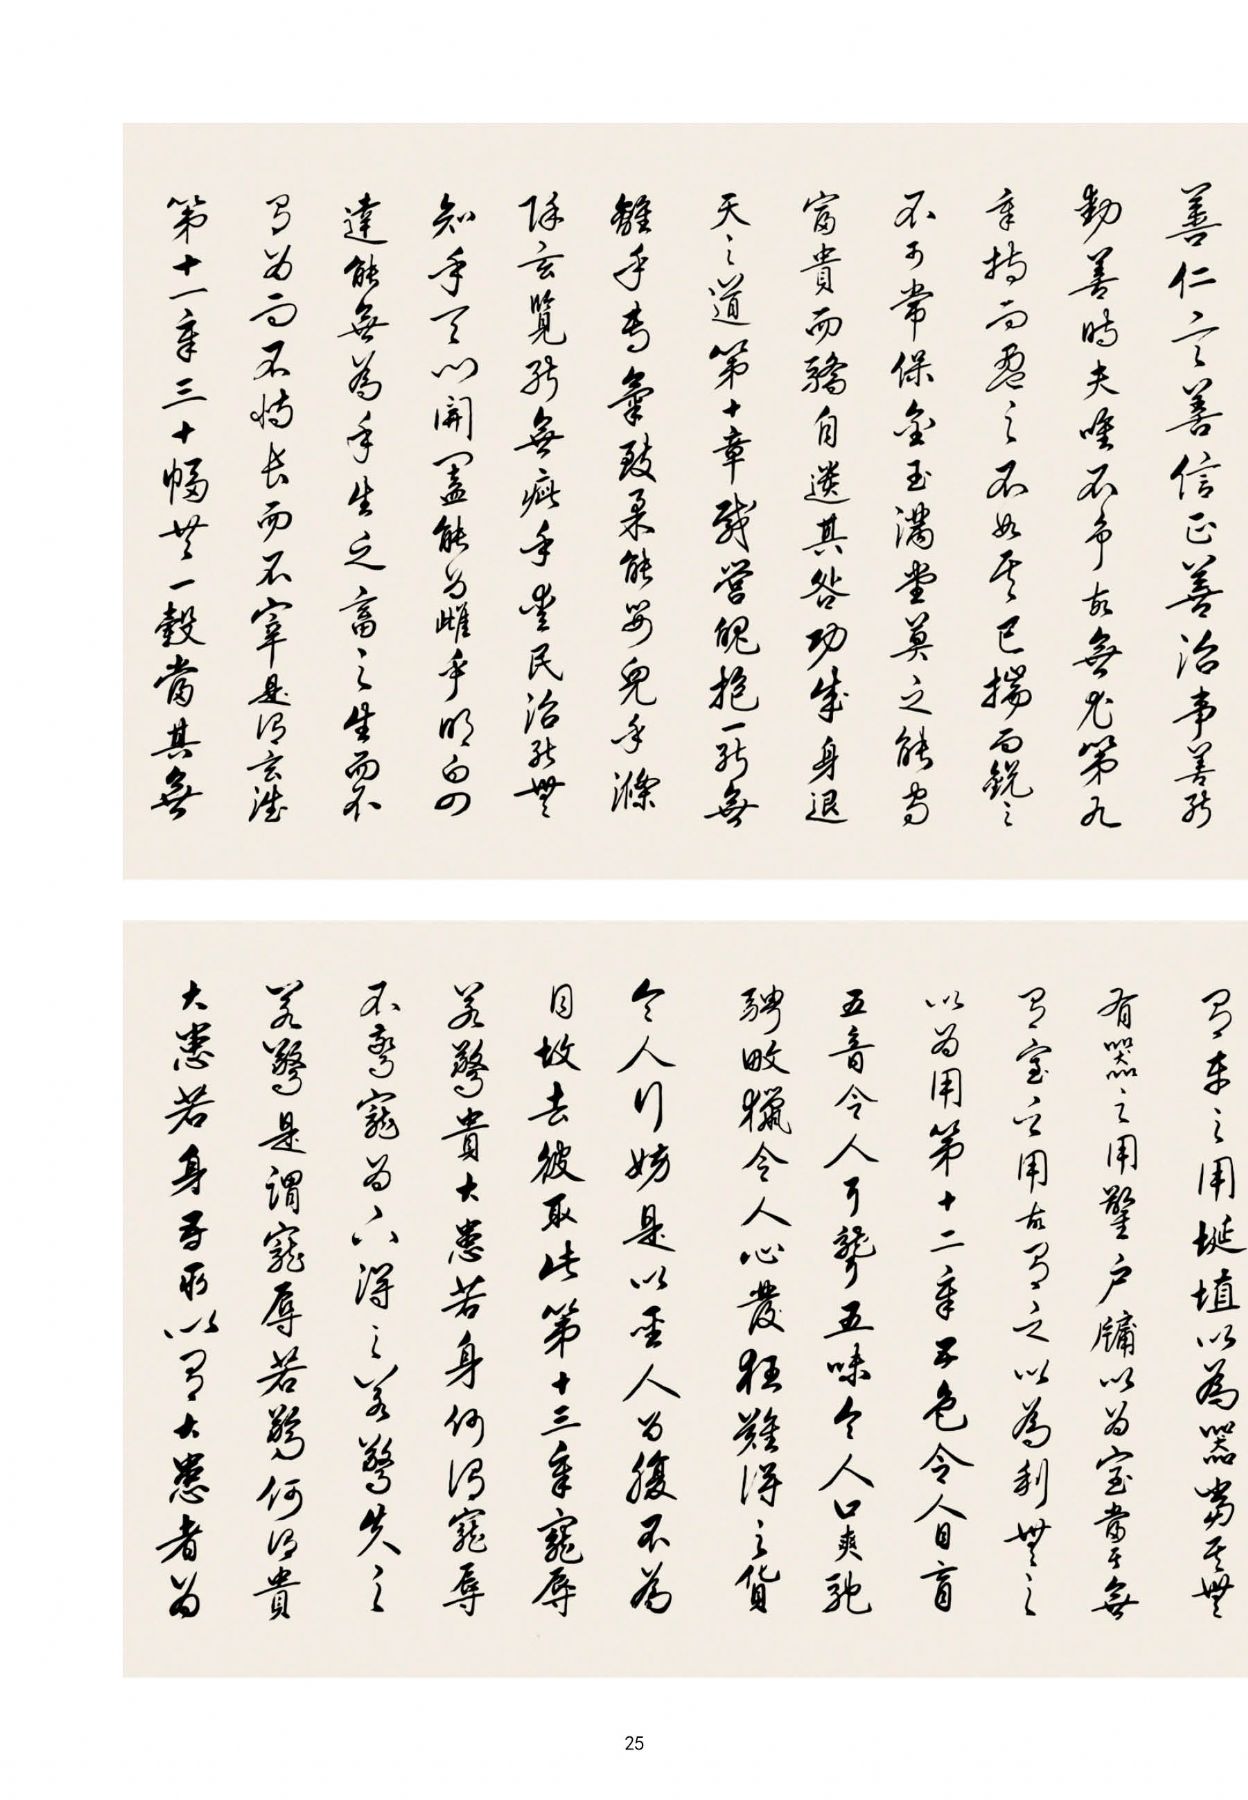 善仁言善信正善治事善能
動善時夫唯不争故無尤第九
章持而盈之不如其已揣而銳之
不可常保金玉滿堂莫之能守
富貴而驕自遺其咎功成身退
天之道第十章載營魄抱一能無
離乎專氣致柔能嬰兒乎滌
除玄覽能無疵乎愛民治能無
知乎天以開闔能為雌乎明白四
達能無為乎生之畜之生而不
有為而不恃長而不宰是謂玄德
第十一章三十幅共一轂當其無
有車之用埏埴以為器當其無
有器之用鑿戶牖以為室當其無
有室之用故有之以為利無之
以為用第十二章五色令人目盲
五音令人耳聾五味令人口爽馳
騁畋獵令人心發狂難得之貨
令人行妨是以聖人為腹不為
目故去彼取此第十三章寵辱
若驚貴大患若身何謂寵辱
不驚寵為下得之若驚失之
若驚是謂寵辱若驚何謂貴
大患若身吾所以有大患者為
25